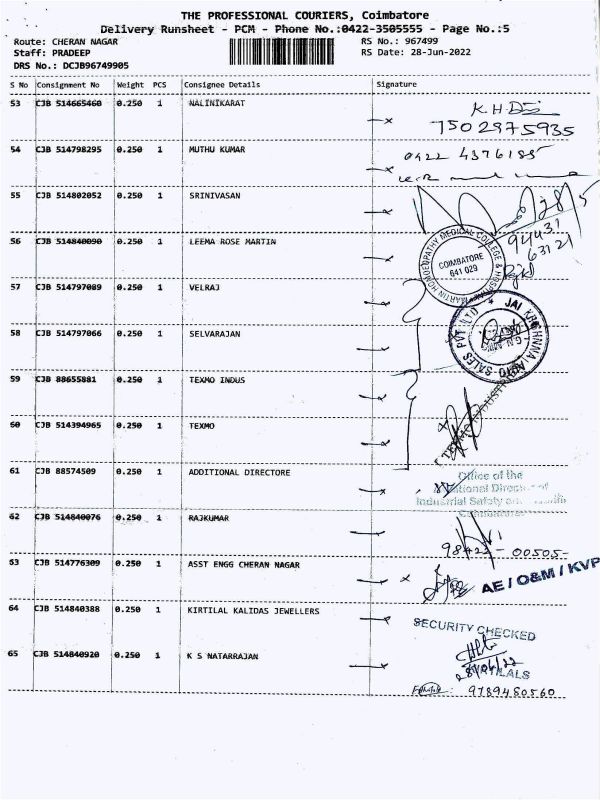 THE PROFESSIONAL COURIERS, Coimbatore
Delivery Runsheet - PCM - Phone No.:0422-3505555 - Page No.:5
Route: CHERAN NAGAR
RS No.: 967499
Staff: PRADEEP
RS Date: 28-Jun-2022
DRS No.: DCJB96749905
S No Consignment No Weight PCS Consignee Details Signature
53 CJB 514665460 0.250 1 NALINIKARAT
7502975935
54 CJB 514798295 0.250 1 MUTHU KUMAR
0422 4376185
55 CJB 514802052 0.250 1 SRINIVASAN
94431
63121
56 CJB 514840090 0.250 1 LEEMA ROSE MARTIN
MARTIN HOMOEOPATHY MEDICAL COLLEGE & HOSPITAL
COIMBATORE
641 029
57 CJB 514797089 0.250 1 VELRAJ
JAI KRISHNAA AUTO SALES PVT LTD
58 CJB 514797066 0.250 1 SELVARAJAN
59 CJB 88655881 0.250 1 TEXMO INDUS
60 CJB 514394965 1 TEXMO
0.250
61 CJB 88574509 0.250 1 ADDITIONAL DIRECTORE
Office of the
Industrial Safety
62 CJB 514840076 0.250 1 RAJKUMAR
63 CJB 514776309 0.250 1 ASST ENGG CHERAN NAGAR
AE / O&M / KVP
64 CJB 514840388 0.250 1 KIRTILAL KALIDAS JEWELLERS
SECURITY CHECKED
65 CJB 514840920 0.250 1 K S NATARRAJAN
28/06/22
9789480560